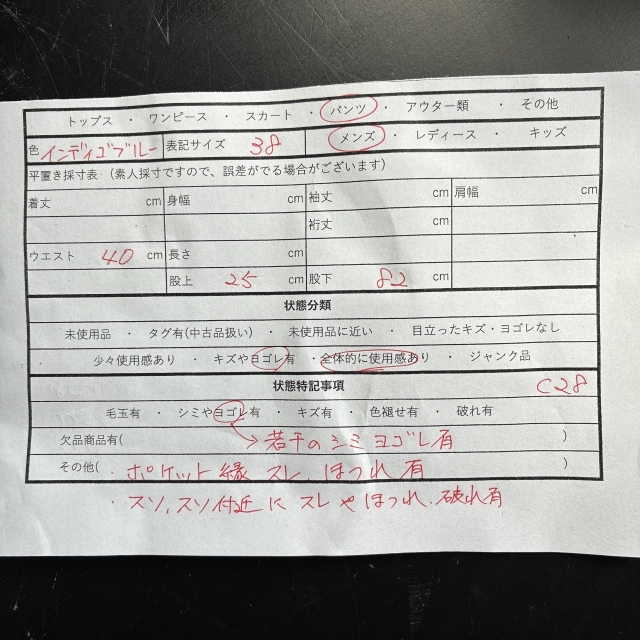 トップス ・ ワンピース ・ スカート ・ パンツ ・ アウター類 ・ その他
色 インディゴブルー 表記サイズ 38 メンズ ・ レディース ・ キッズ
平置き採寸表 （素人採寸ですので、誤差がでる場合がございます）
着丈 cm 身幅 cm 袖丈 cm 肩幅 cm
裄丈 cm
ウエスト 40 cm 長さ cm
股上 25 cm 股下 82 cm
状態分類
未使用品 ・ タグ有(中古品扱い) ・ 未使用品に近い ・ 目立ったキズ・ヨゴレなし
少々使用感あり ・ キズやヨゴレ有 ・ 全体的に使用感あり ・ ジャンク品
状態特記事項 C28
毛玉有 ・ シミやヨゴレ有 ・ キズ有 ・ 色褪せ有 ・ 破れ有
欠品商品有( → 若干のシミヨゴレ有 )
その他( ・ポケット縁 スレ、ほつれ 有 )
・スソ、スソ付近に スレ や ほつれ、破れ有